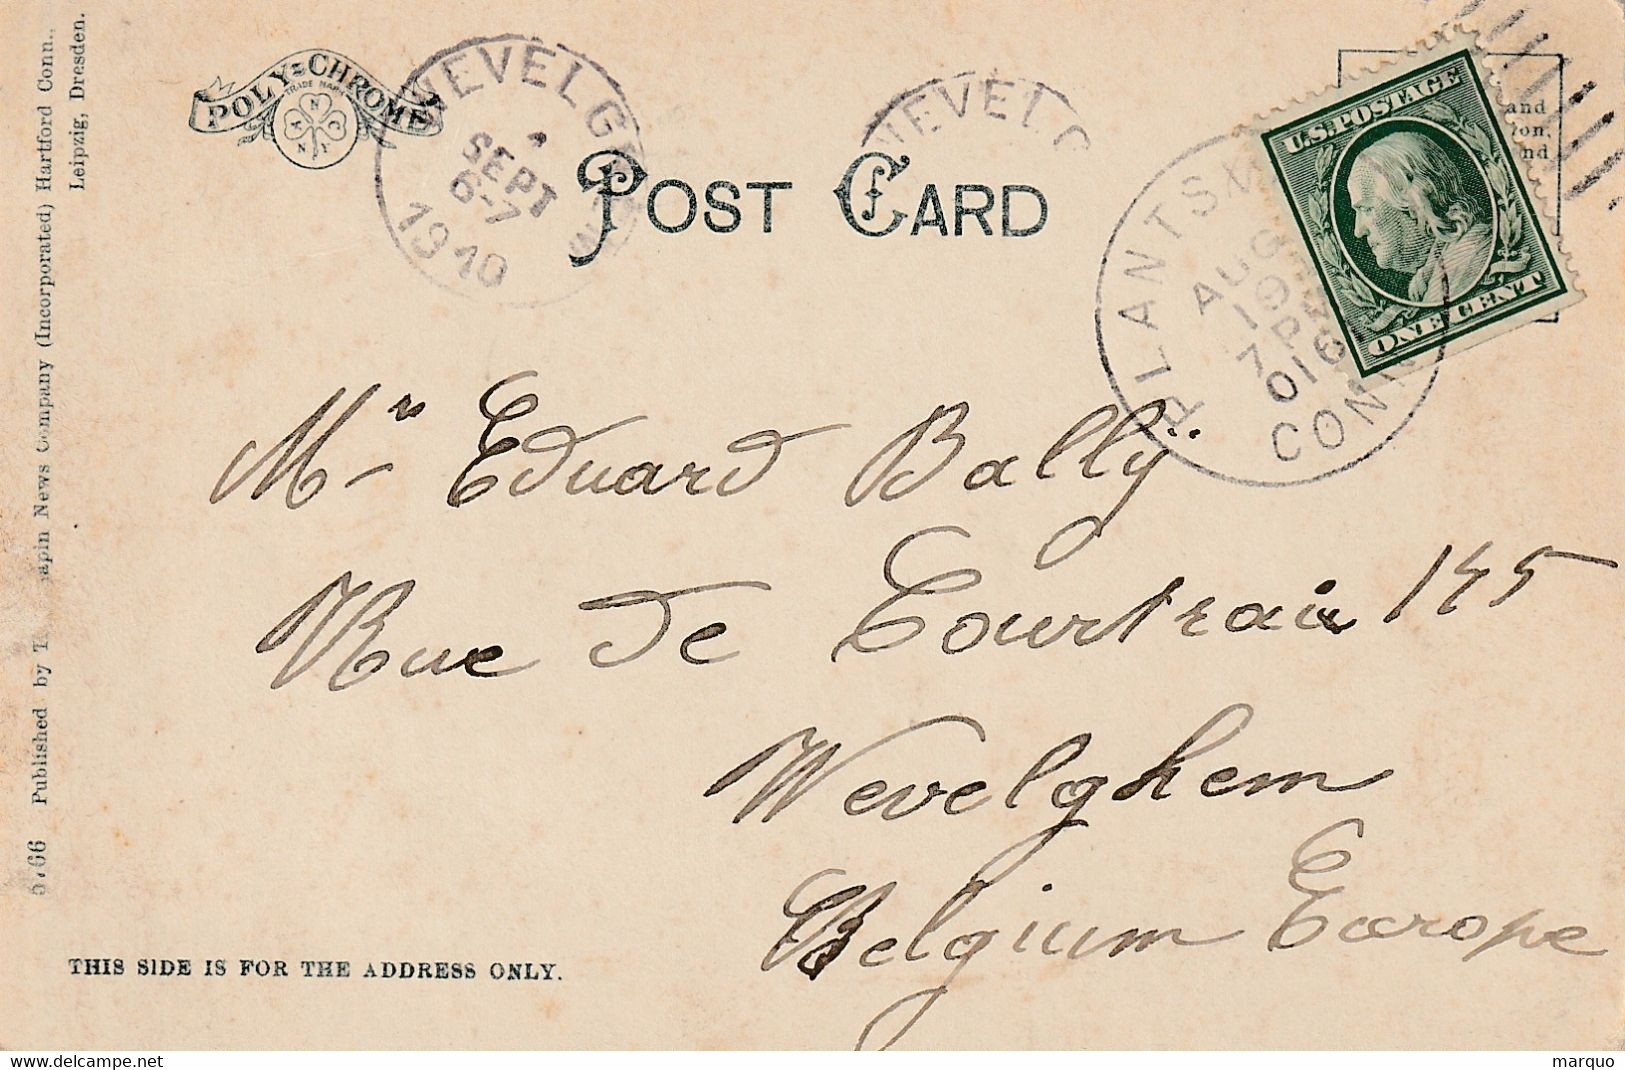 5766 Published by T. apin News Company (Incorporated) Hartford Conn.,
Leipzig, Dresden.
POLY-CHROME
TRADE MARK
WEVELGE
SEPT
6-7
1910
WEVELG
POST CARD
PLANTSV
AUG
7 P
CONN
U.S. POSTAGE
ONE CENT
and
on,
nd
Mr Eduard Ballÿ
Rue de Courtrai 145
Wevelghem
Belgium Europe
THIS SIDE IS FOR THE ADDRESS ONLY.
marquo
delcampe.net